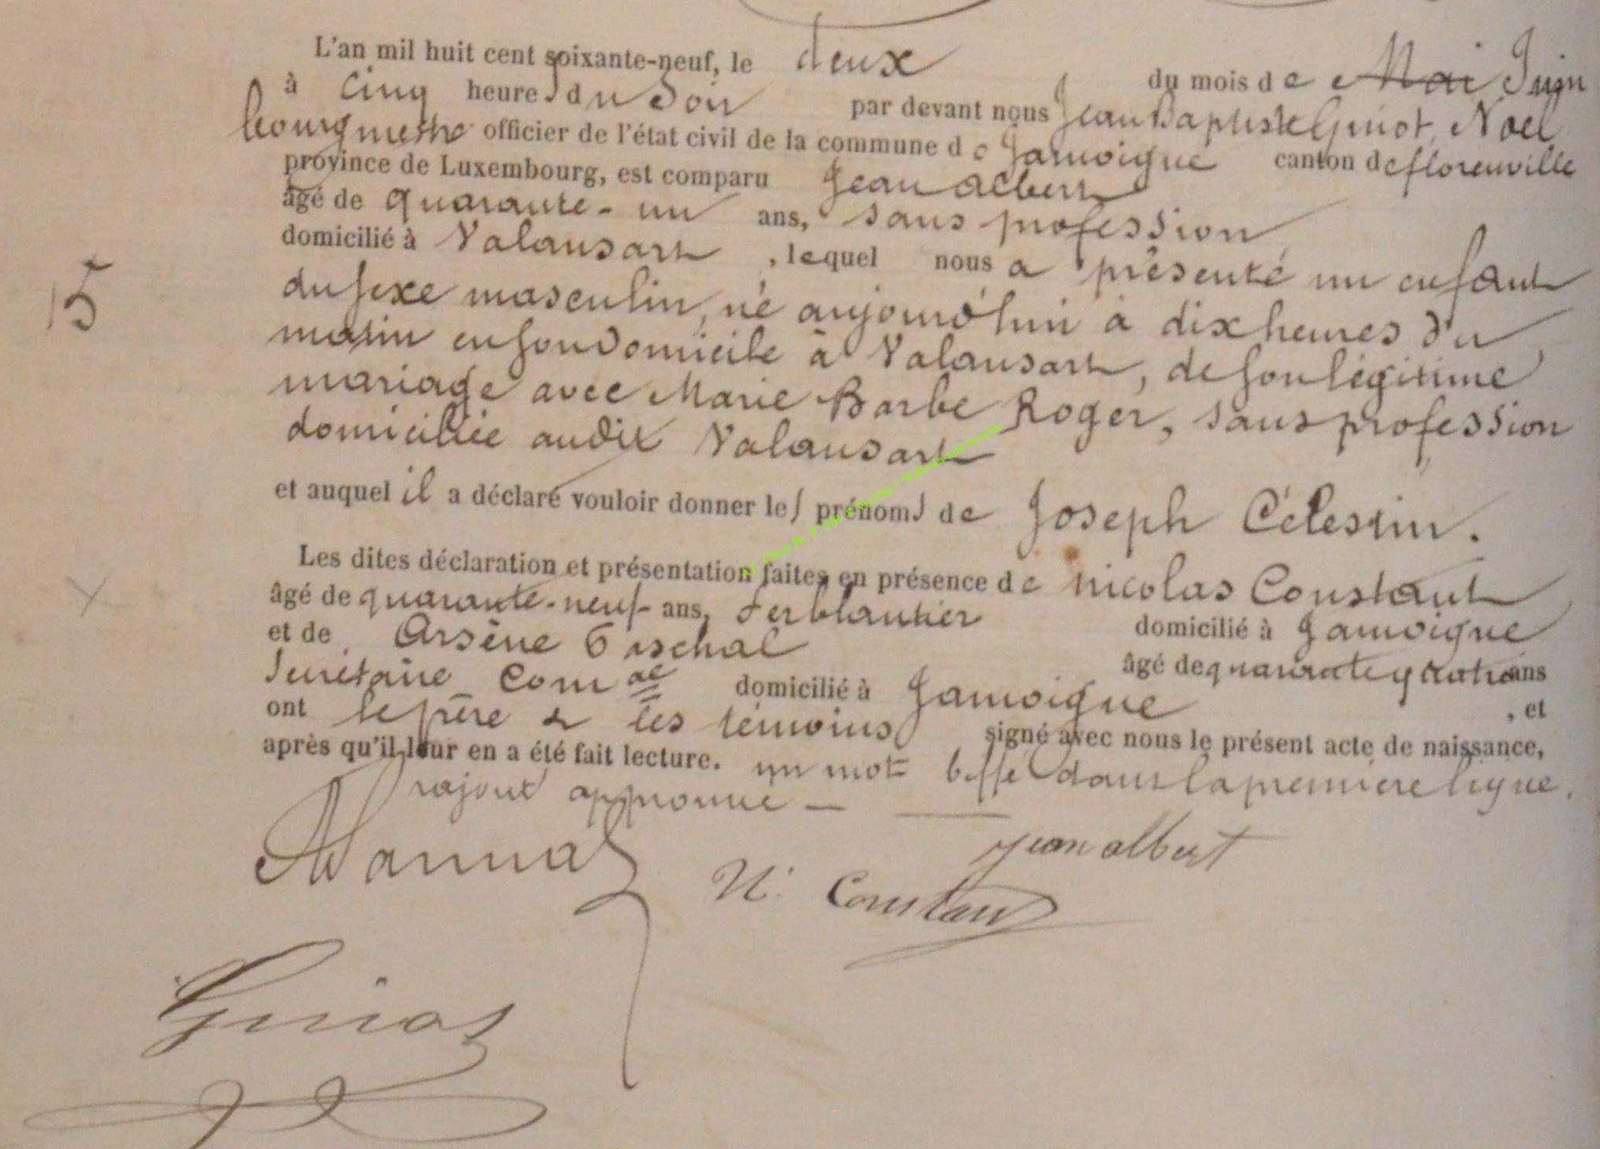 L'an mil huit cent soixante-neuf, le deux du mois de Mai Juin
à cinq heures du soir par devant nous Jean Baptiste Guiot, Noël
bourgmestre officier de l'état civil de la commune de Jamoigne canton de florenville
province de Luxembourg, est comparu Jean Albert
âgé de quarante-un ans, sans profession
domicilié à Valansart, lequel nous a présenté un enfant
du sexe masculin, né aujourd'hui à dix heures du
matin en son domicile à Valansart, de son légitime
mariage avec Marie Barbe Roger, sans profession
domiciliée audit Valansart
15
et auquel il a déclaré vouloir donner les prénoms de Joseph Célestin.
Les dites déclaration et présentation faites en présence de Nicolas Constant
âgé de quarante-neuf ans, ferblantier domicilié à Jamoigne
et de Arsène âgé de quarante quatre ans
Secrétaire Comal domicilié à Jamoigne, et
ont le père & les témoins signé avec nous le présent acte de naissance,
après qu'il leur en a été fait lecture. un mot biffé dans la première ligne.
rajout approuvé —
jean albert
N. Constant
Guiot